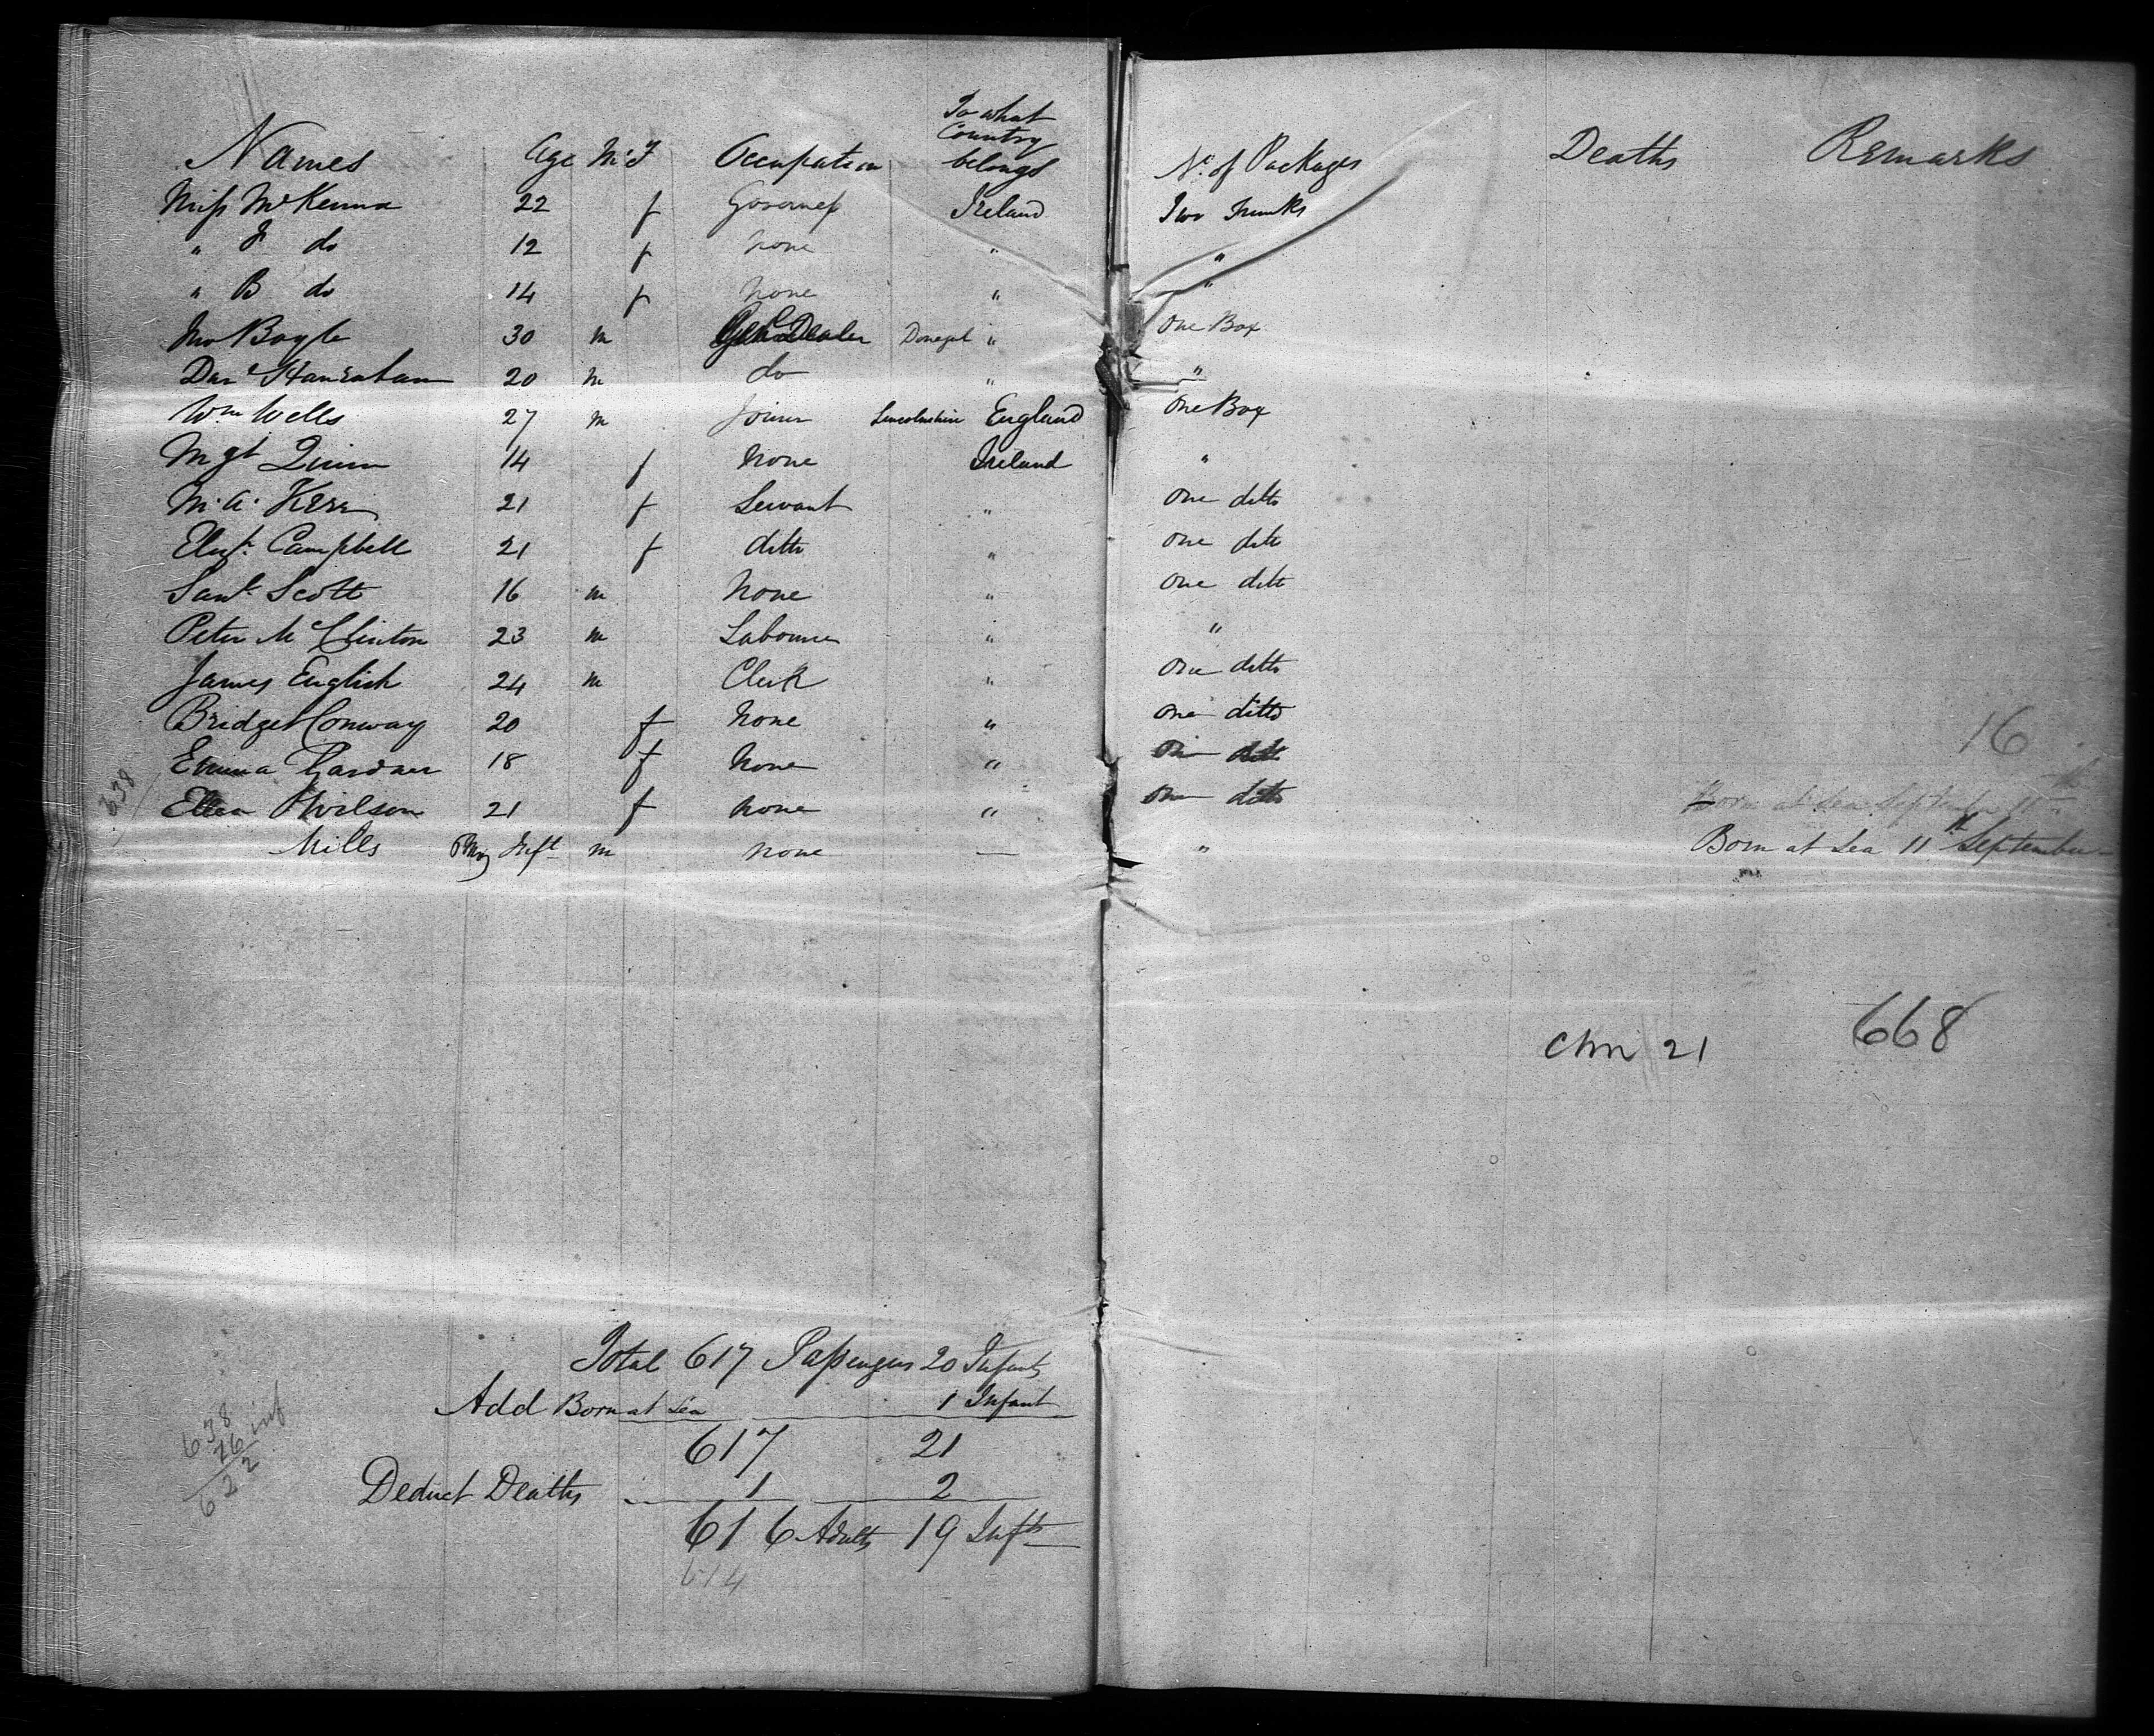 Names Age M. F Occupation To what Country belongs No. of Packages Deaths Remarks
Miss McKenna 22 f Governess Ireland Two Trunks
" J do 12 f none " "
" B do 14 f none " "
Jno Boyle 30 m Dealer Donegal " One Box
Danl Hanrahan 20 m do " "
Wm Wells 27 m Joiner Lincolnshire England One Box
Mgt Quinn 14 f None Ireland "
M. A. Kerr 21 f Servant " One ditto
Elizh. Campbell 21 f ditto " One ditto
Saml Scott 16 m None " One ditto
Peter McClinton 23 m Labourer " "
James English 24 m Clerk " One ditto
Bridget Conway 20 f None " One ditto
16
Emma Gardner 18 f None " One ditto
638
Ellen Wilson 21 f none " One ditto
Born at Sea September 11th
Mills Boy Inft m none — " Born at Sea 11th September
668
21
Total 617 Passengers 20 Infants
Add Born at Sea 1 Infant
617 21
Deduct Deaths 1 2
616 Adults 19 Infts
614
638
16 inf
622